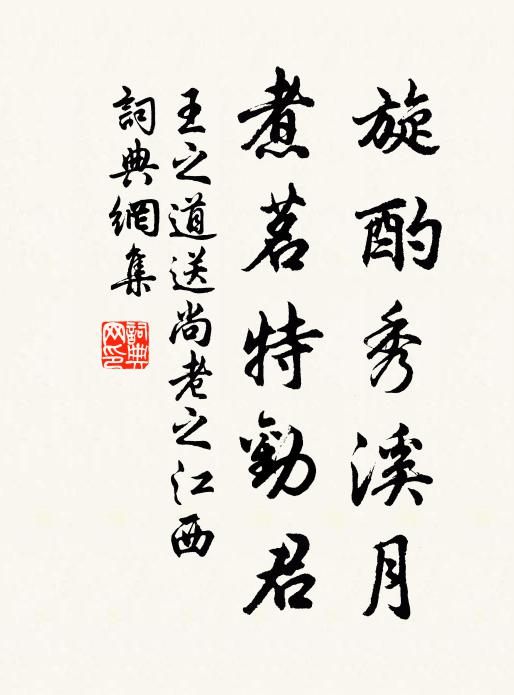 旋酌秀溪月
煮茗特勸君
王之道送尚老之江西
詞典網集
詞典网印